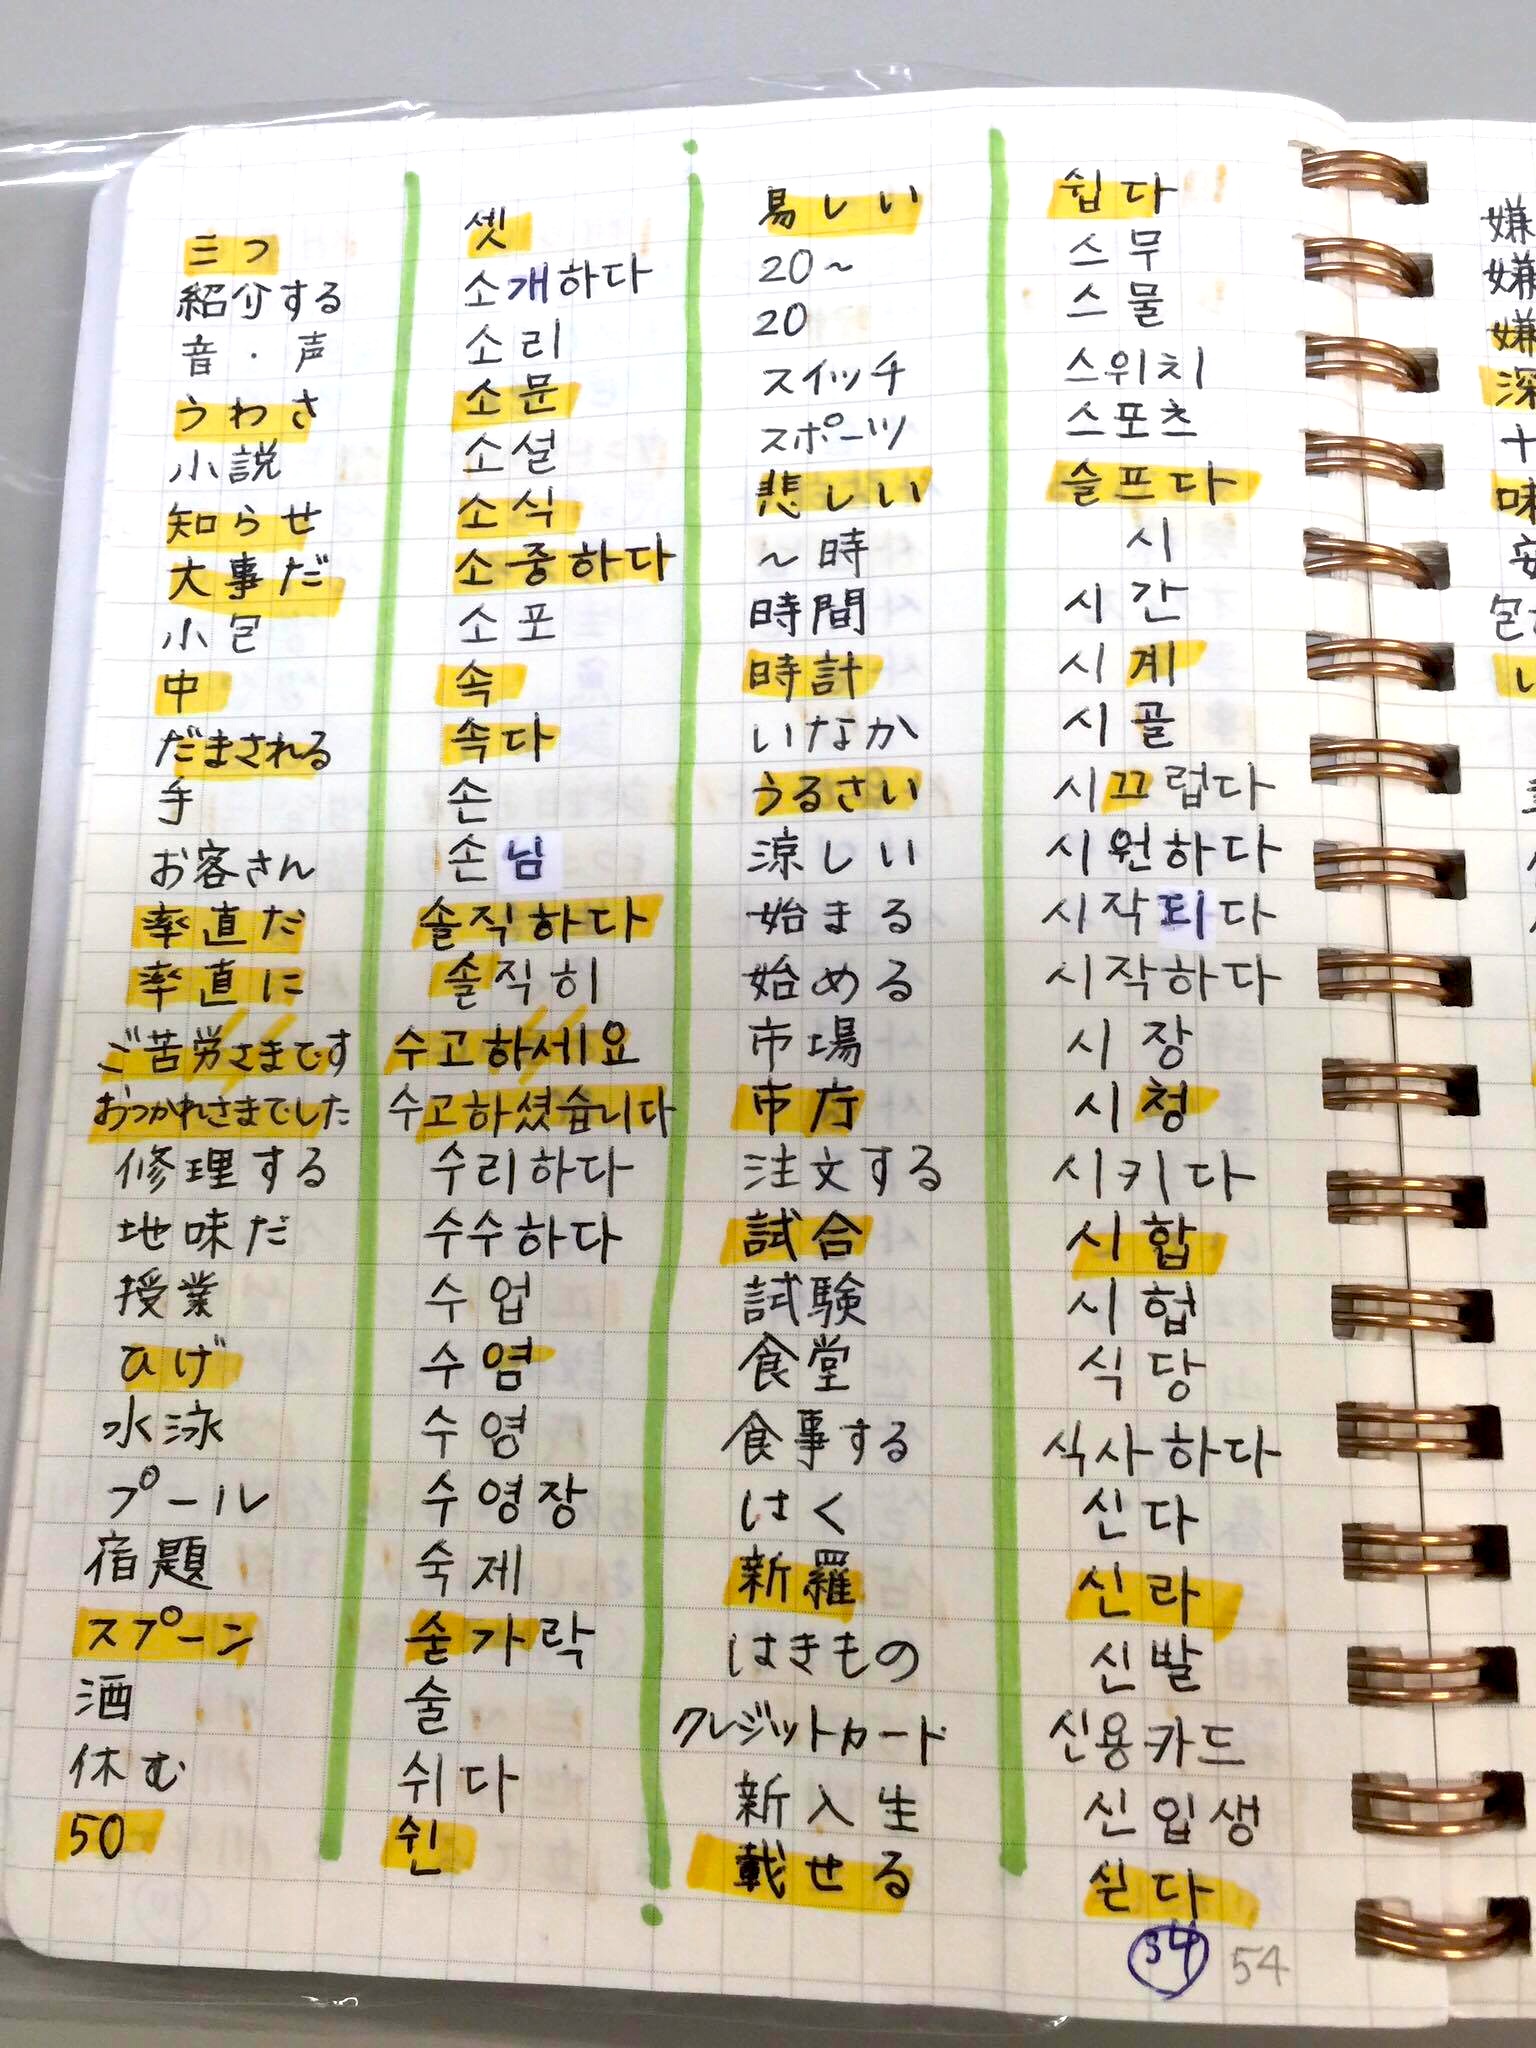 三つ 셋
紹介する 소개하다
音・声 소리
うわさ 소문
小説 소설
知らせ 소식
大事だ 소중하다
小包 소포
中 속
だまされる 속다
手 손
お客さん 손님
率直だ 솔직하다
率直に 솔직히
ご苦労さまです 수고하세요
おつかれさまでした 수고하셨습니다
修理する 수리하다
地味だ 수수하다
授業 수업
ひげ 수염
水泳 수영
プール 수영장
宿題 숙제
スプーン 숟가락
酒 술
休む 쉬다
50 쉰
易しい 쉽다
20~ 스무
20 스물
スイッチ 스위치
スポーツ 스포츠
悲しい 슬프다
~時 시
時間 시간
時計 시계
いなか 시골
うるさい 시끄럽다
涼しい 시원하다
始まる 시작되다
始める 시작하다
市場 시장
市庁 시청
注文する 시키다
試合 시합
試験 시험
食堂 식당
食事する 식사하다
はく 신다
新羅 신라
はきもの 신발
クレジットカード 신용카드
新入生 신입생
載せる 싣다
54 54
嫌
嫌
嫌
深
十
味